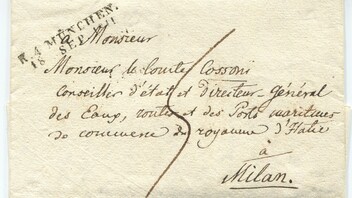 R. 4. MÜNCHEN.
18 SEP. 1811
Monsieur
Monsieur le Comte Cossoni
Conseiller d'état et directeur-général
des Eaux, routes et des Ports maritimes
de commerce du royaume d'Italie
à
Milan.